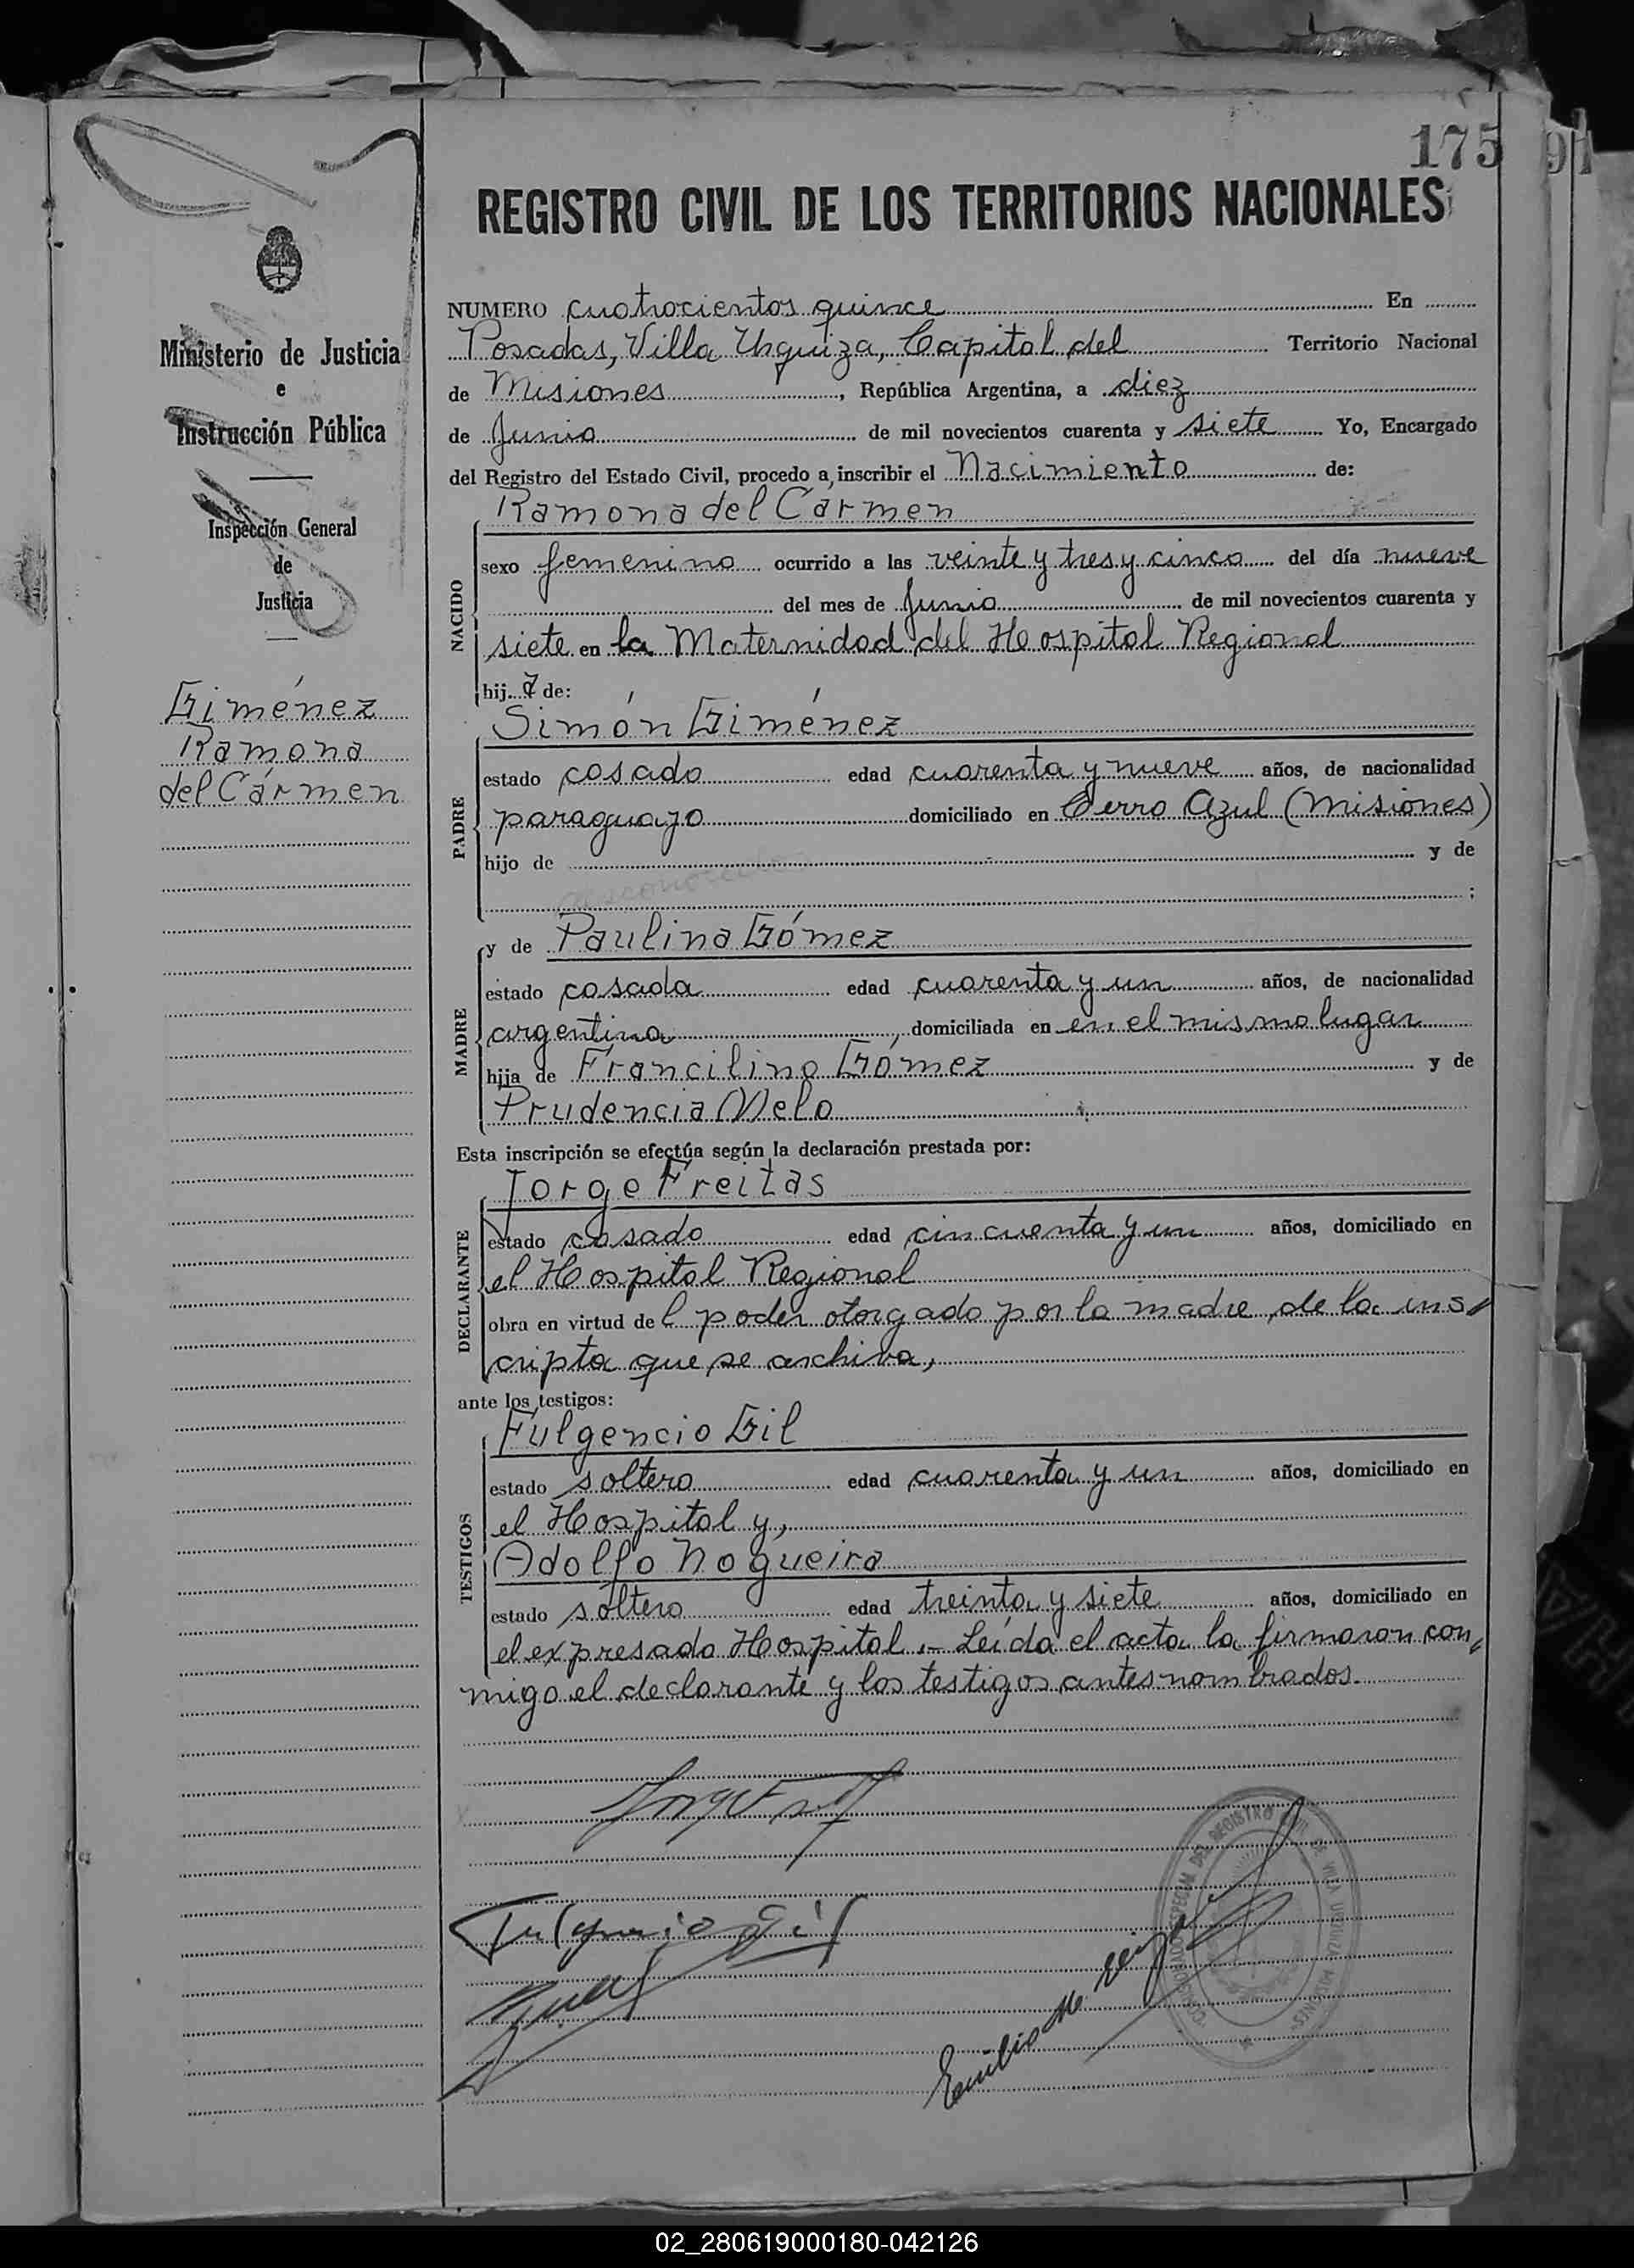 175 91
REGISTRO CIVIL DE LOS TERRITORIOS NACIONALES
Ministerio de Justicia
e
Instrucción Pública
Inspección General
de
Justicia
Giménez
Ramona
del Cármen
NUMERO cuatrocientos quince En
Posadas, Villa Urquiza, Capital del Territorio Nacional
de Misiones, República Argentina, a diez
de Junio de mil novecientos cuarenta y siete Yo, Encargado
del Registro del Estado Civil, procedo a inscribir el Nacimiento de:
Ramona del Cármen
NACIDO
sexo femenino ocurrido a las veinte y tres y cinco del día nueve
del mes de Junio de mil novecientos cuarenta y
siete en la Maternidad del Hospital Regional
hij a de:
Simón Giménez
PADRE
estado casado edad cuarenta y nueve años, de nacionalidad
paraguayo domiciliado en Cerro Azul (Misiones)
hijo de y de
;
y de Paulina Gómez
MADRE
estado casada edad cuarenta y un años, de nacionalidad
argentina, domiciliada en en el mismo lugar
hija de Francilino Gómez y de
Prudencia Melo
Esta inscripción se efectúa según la declaración prestada por:
Jorge Freitas
DECLARANTE
estado casado edad cincuenta y un años, domiciliado en
el Hospital Regional
obra en virtud de l poder otorgado por la madre de la ins//
cripta que se archiva,
ante los testigos:
Fulgencio Gil
TESTIGOS
estado soltero edad cuarenta y un años, domiciliado en
el Hospital y,
Adolfo Nogueira
estado soltero edad treinta y siete años, domiciliado en
el expresado Hospital.- Leída el acta la firmaron con//
migo el declarante y los testigos antes nombrados.
Fulgencio Gil
Emilio M.
REGISTRO CIVIL DE VILLA URQUIZA MISIONES
02_280619000180-042126